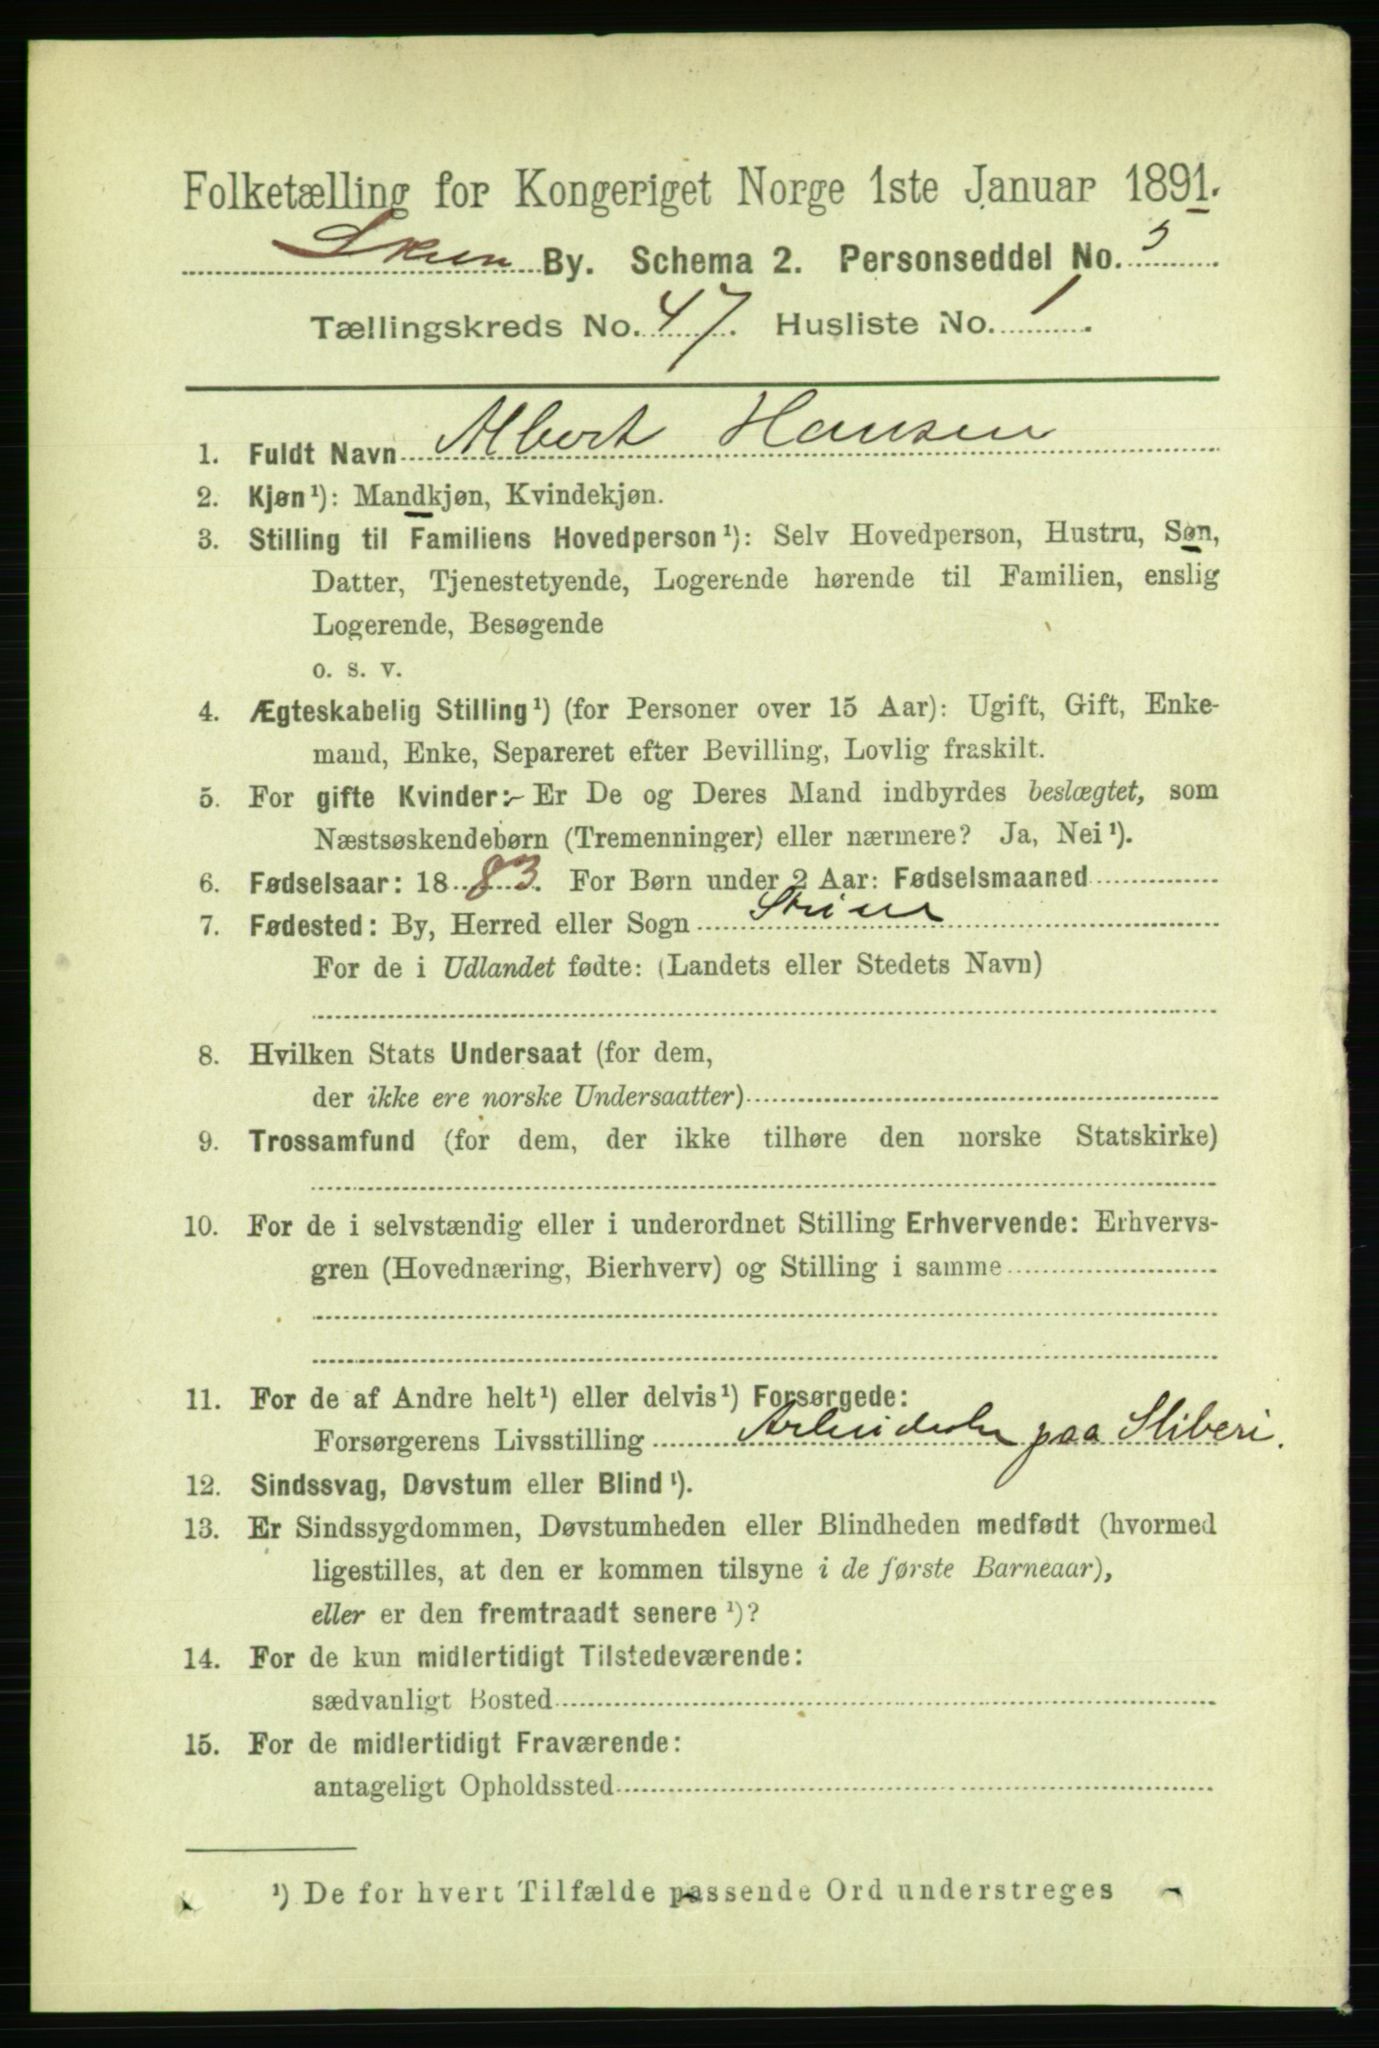 Folketælling for Kongeriget Norge 1ste Januar 1891.
Skien By. Schema 2. Personseddel No. 5
Tællingskreds No. 47. Husliste No. 1.
1. Fuldt Navn Albert Hansen
2. Kjøn¹): Mandkjøn, Kvindekjøn.
3. Stilling til Familiens Hovedperson¹): Selv Hovedperson, Hustru, Søn,
Datter, Tjenestetyende, Logerende hørende til Familien, enslig
Logerende, Besøgende
o. s. v.
4. Ægteskabelig Stilling¹) (for Personer over 15 Aar): Ugift, Gift, Enke-
mand, Enke, Separeret efter Bevilling, Lovlig fraskilt.
5. For gifte Kvinder: Er De og Deres Mand indbyrdes beslægtet, som
Næstsøskendebørn (Tremenninger) eller nærmere? Ja, Nei¹).
6. Fødselsaar: 1883. For Børn under 2 Aar: Fødselsmaaned
7. Fødested: By, Herred eller Sogn
For de i Udlandet fødte: (Landets eller Stedets Navn)
8. Hvilken Stats Undersaat (for dem,
der ikke ere norske Undersaatter)
9. Trossamfund (for dem, der ikke tilhøre den norske Statskirke)
10. For de i selvstændig eller i underordnet Stilling Erhvervende: Erhvervs-
gren (Hovednæring, Bierhverv) og Stilling i samme
11. For de af Andre helt¹) eller delvis¹) Forsørgede:
Forsørgerens Livsstilling Arbeider paa Sliberi.
12. Sindssvag, Døvstum eller Blind¹).
13. Er Sindssygdommen, Døvstumheden eller Blindheden medfødt (hvormed
ligestilles, at den er kommen tilsyne i de første Barneaar),
eller er den fremtraadt senere¹)?
14. For de kun midlertidigt Tilstedeværende:
sædvanligt Bosted
15. For de midlertidigt Fraværende:
antageligt Opholdssted
¹) De for hvert Tilfælde passende Ord understreges